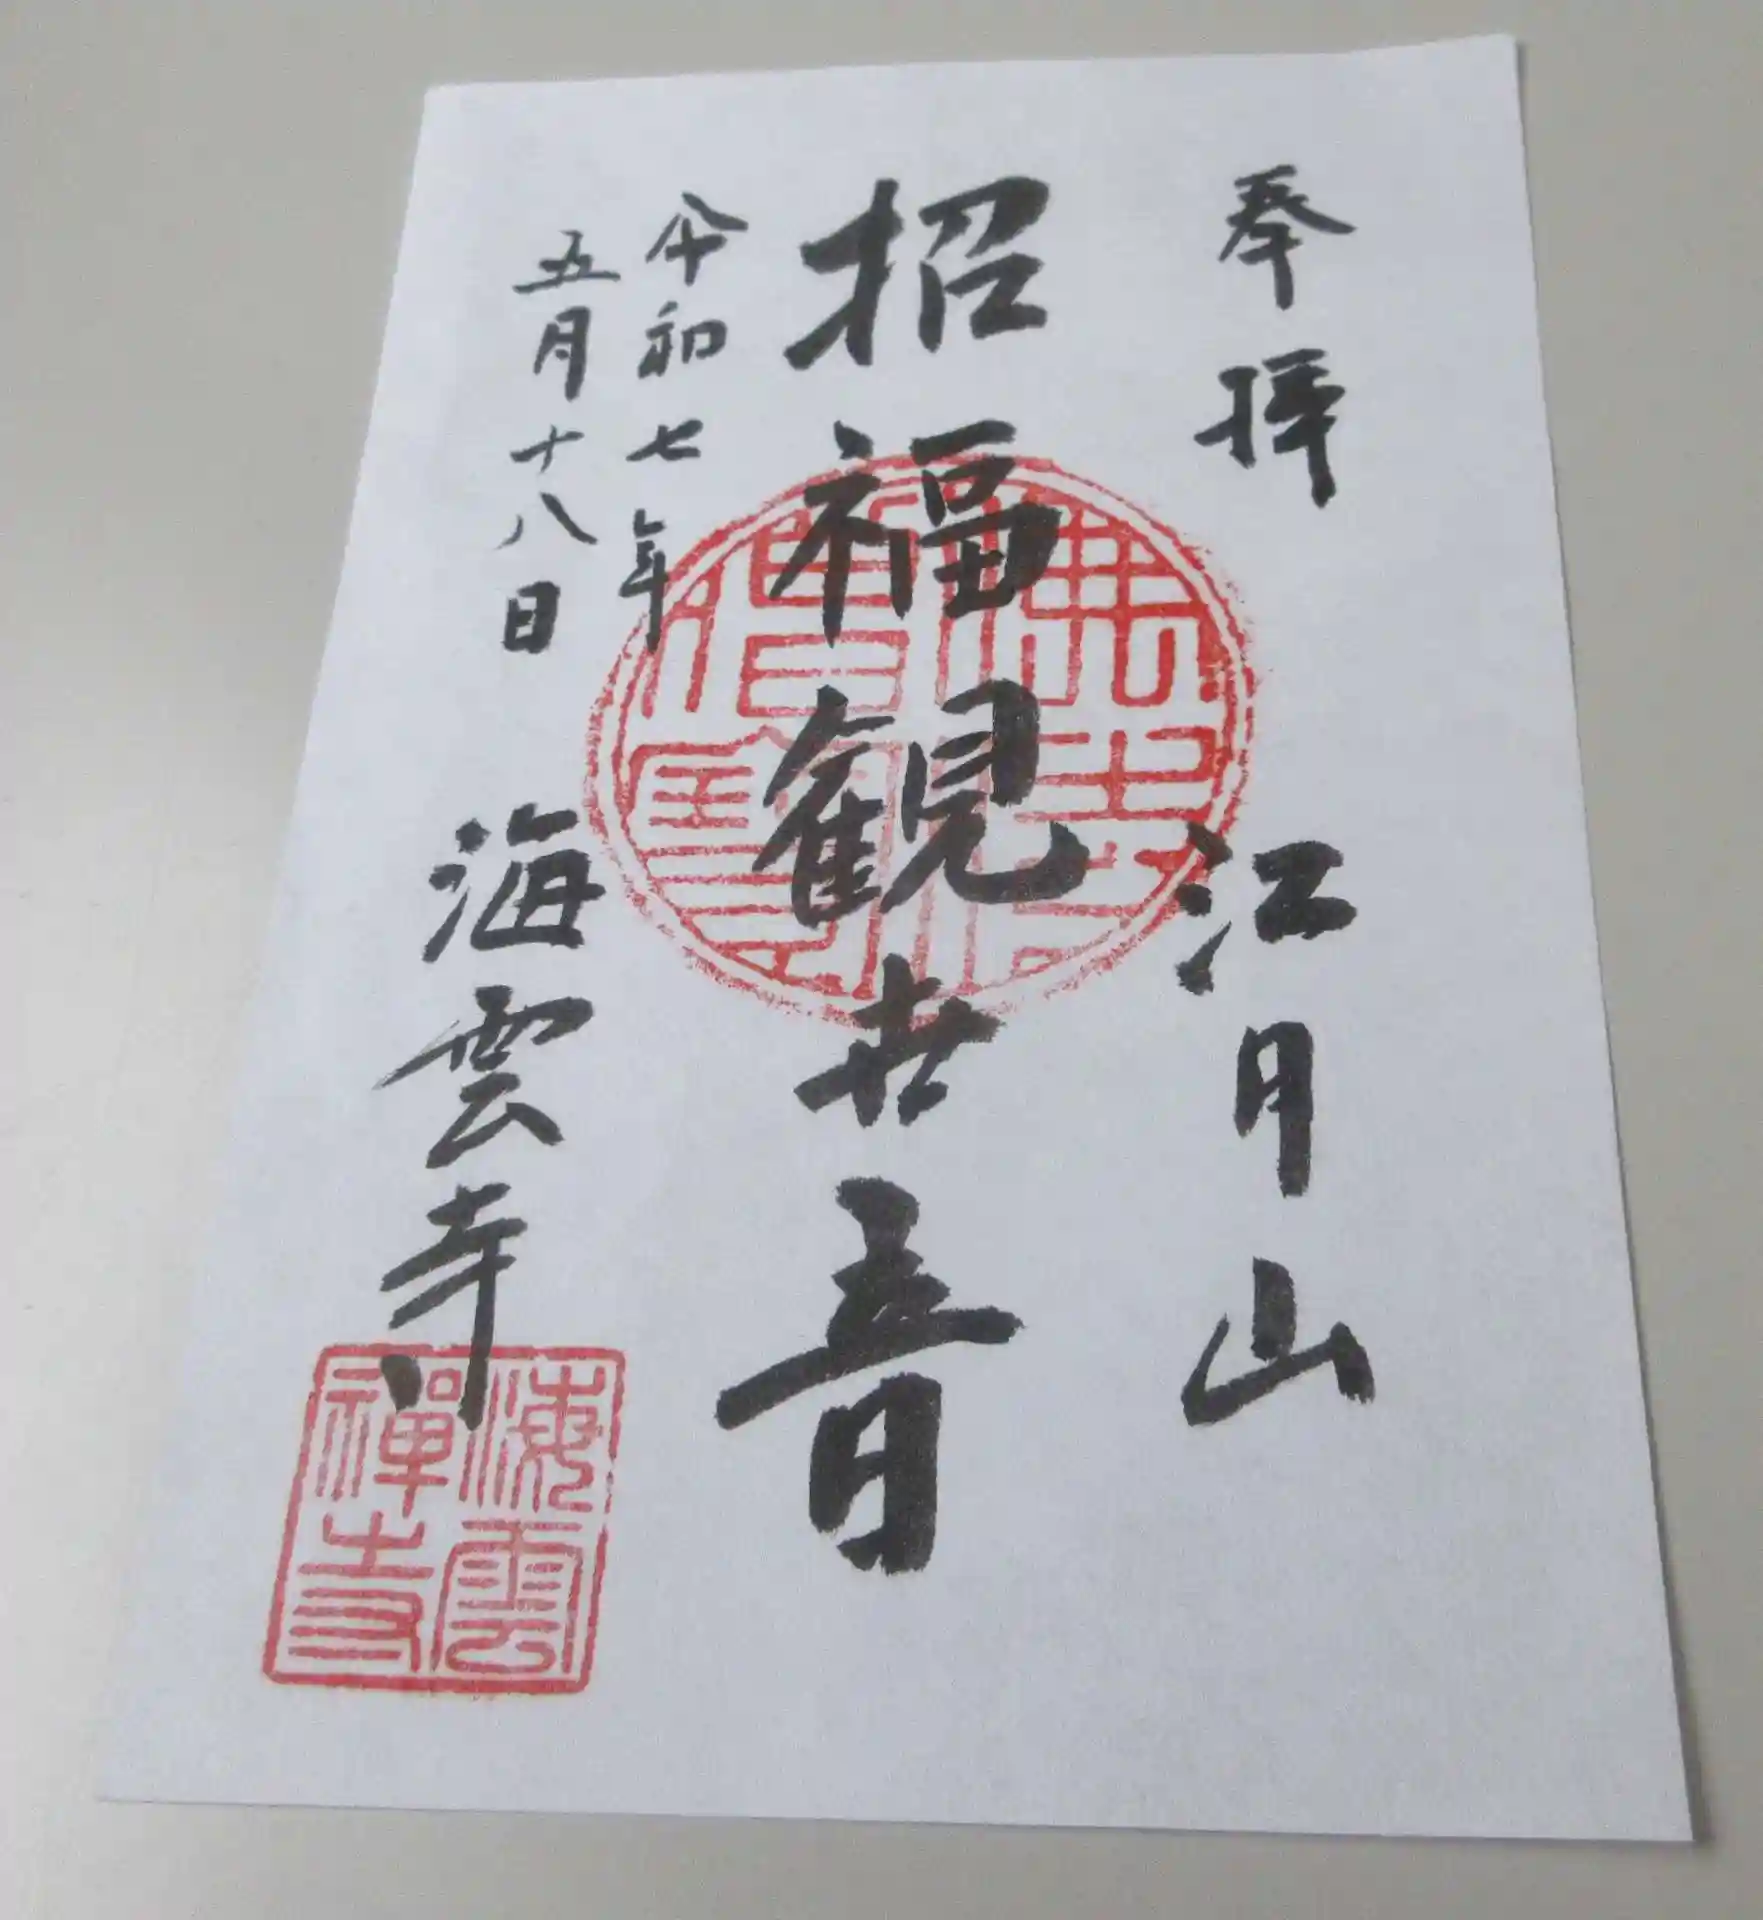 奉拝 江月山
招福観世音
令和七年
五月十八日
海雲寺
佛法僧寶
海雲禅寺